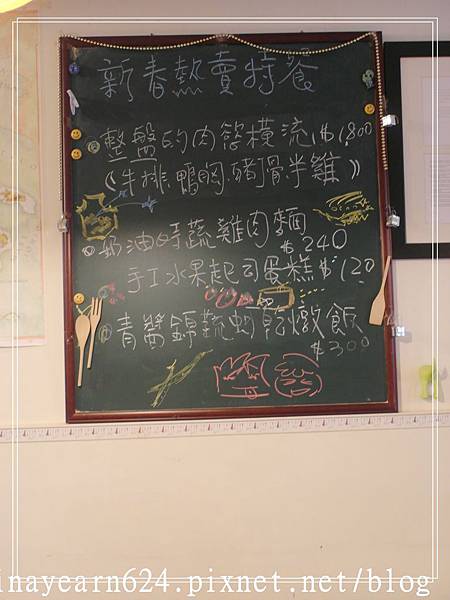 新春熱賣特餐
整盤的肉慾橫流$1800
(牛排鴨胸豬腳半雞)
奶油時蔬雞肉麵
$240
手工水果起司蛋糕$120
青醬錦蔬蛤蜊燉飯
$300
inayearn624.pixnet.net/blog